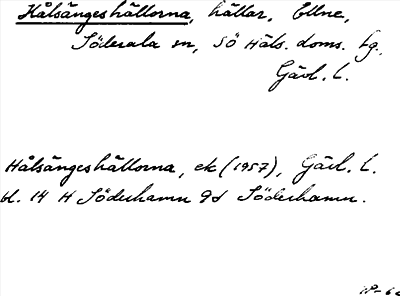 Hålsängeshällorna, hällar, Ellne,
Söderala sn, SÖ Häls. doms. tg.,
Gävl. l.
Hålsängeshällorna, ek (1957), Gävl. l.
bl. 14 H Söderhamn 9d Söderhamn.